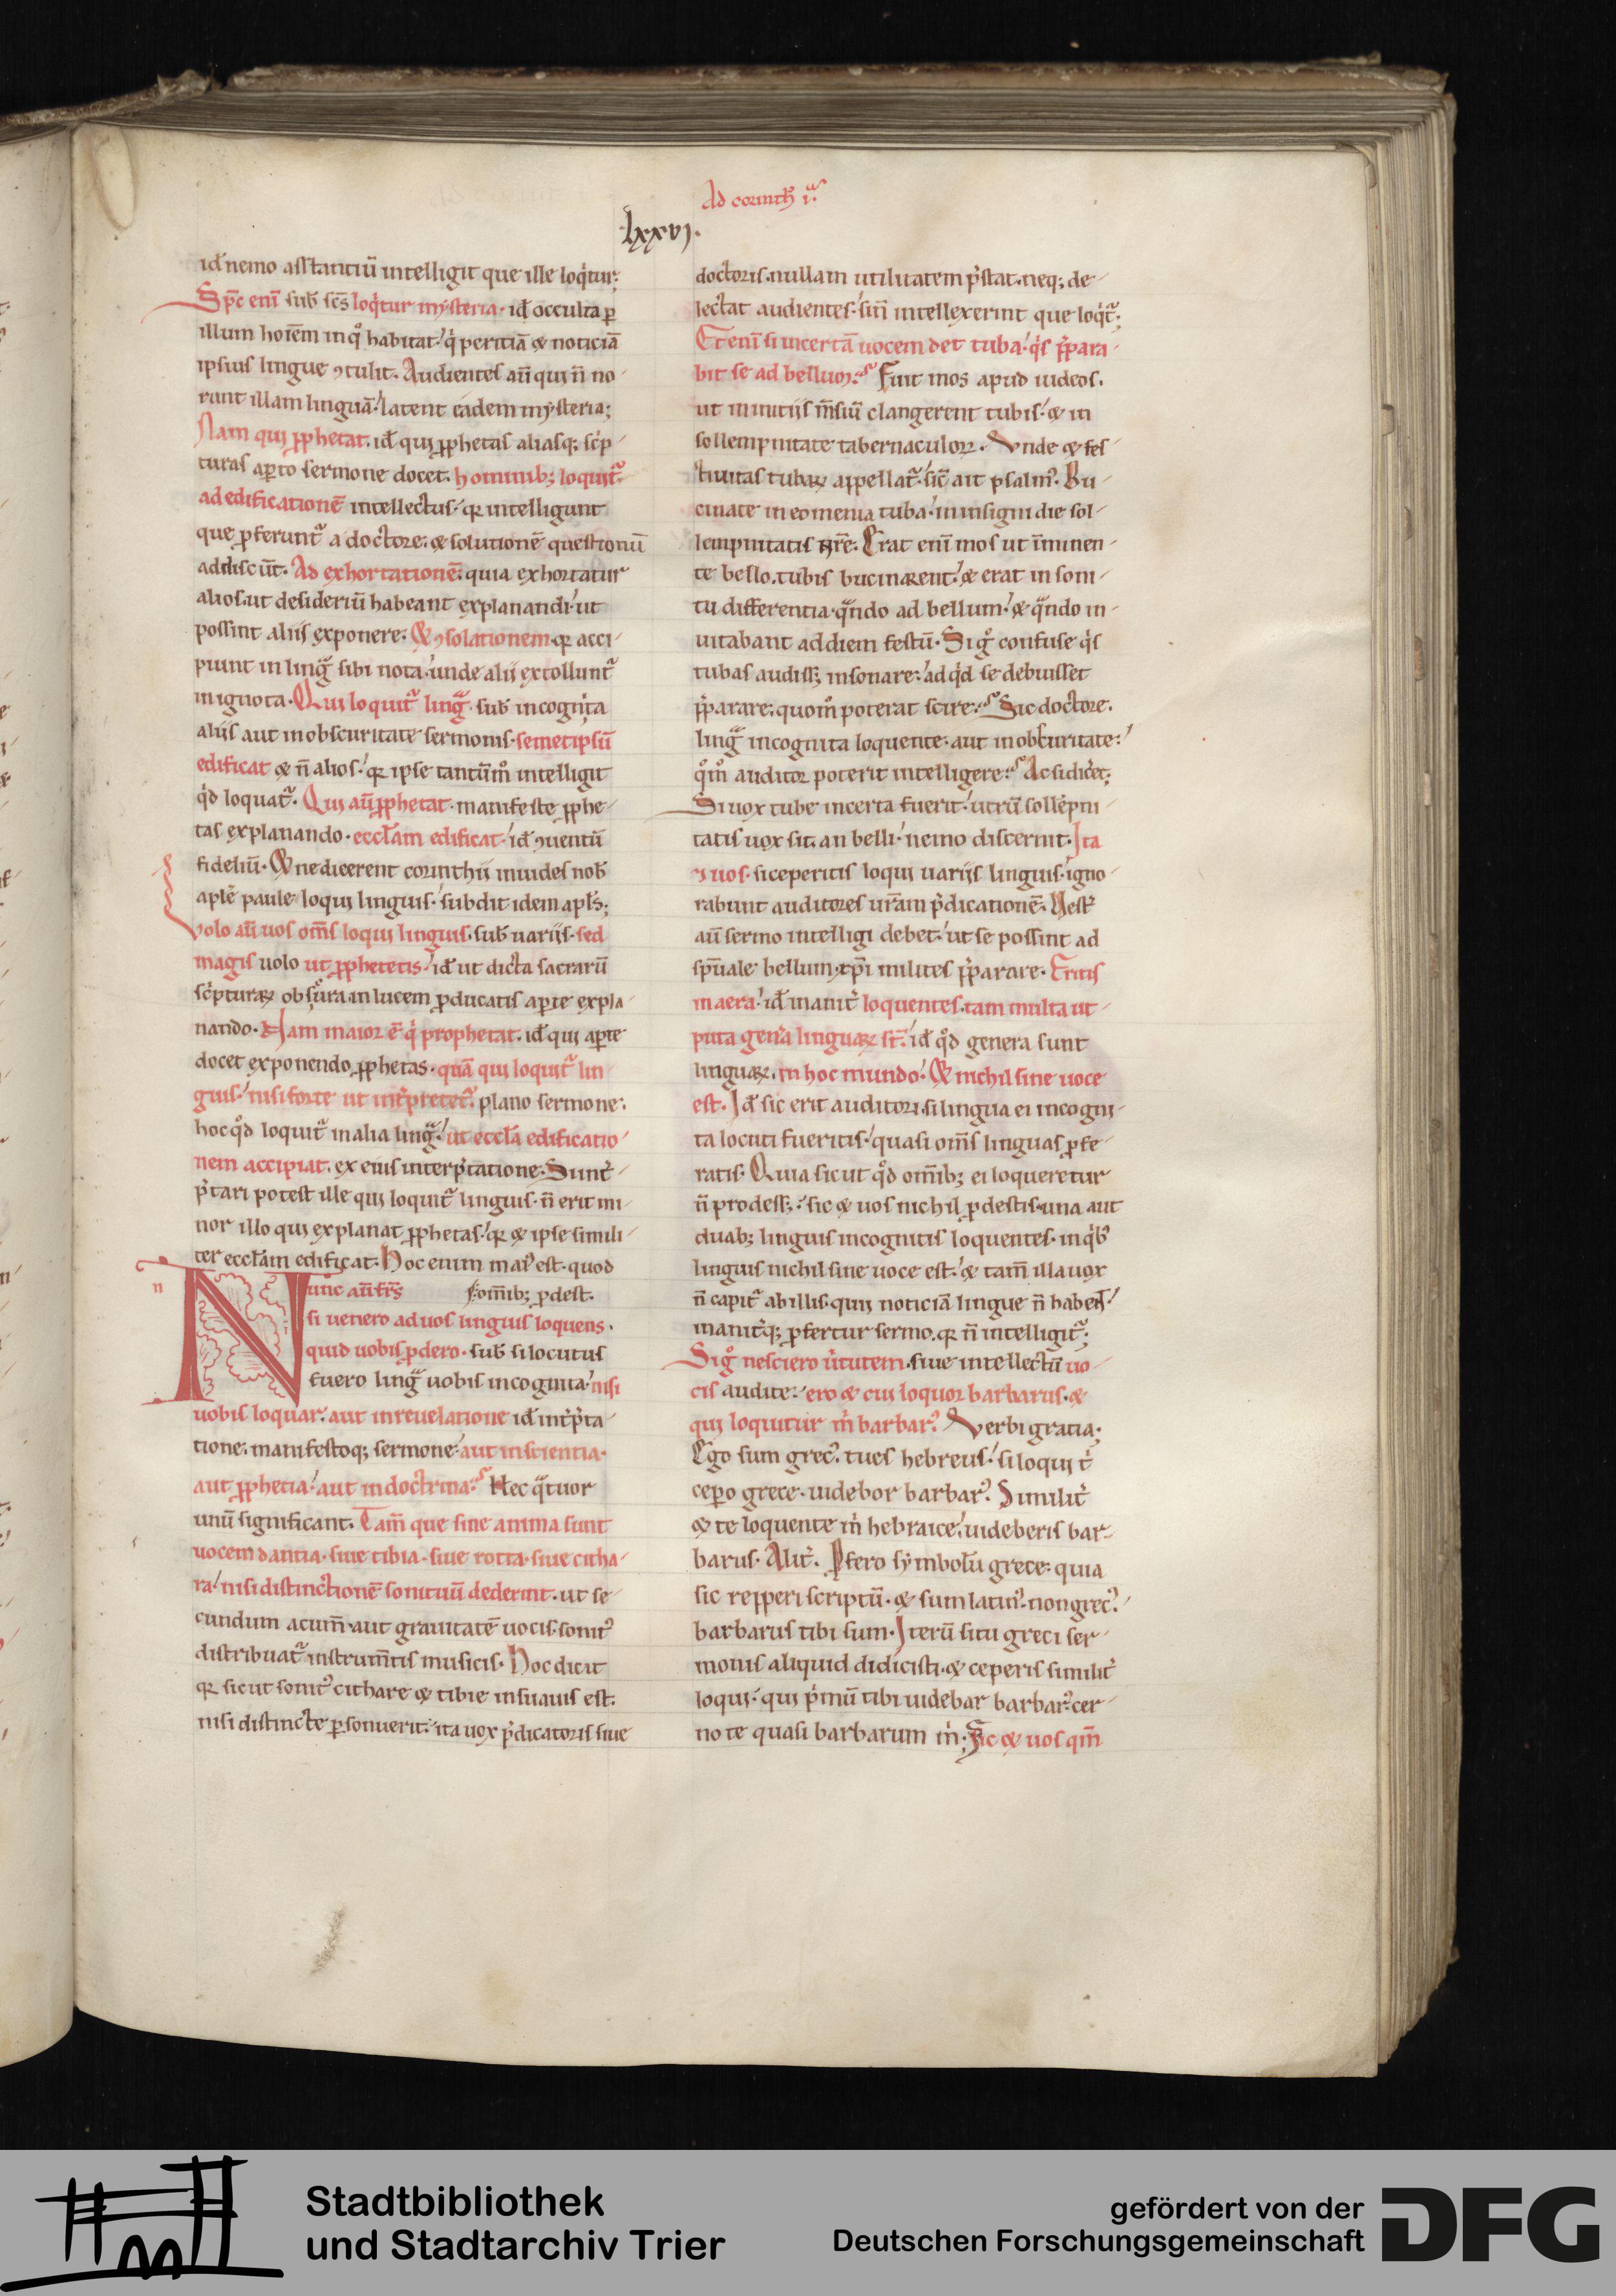 Ad corinth̄ i.ª
.lxxvi.
id̄ nemo asstantiū intelligit que ille loq̇tur;
Sp̄c eni̅ sub̄ sc̄s loq̇tur mysteria. id̄ occulta ꝑ
illum hoīem inq͛ habitat. q̇ peritiā & noticiā
ipsius lingue ꝯtulit. Audientes aū qui n̄ no-
runt illam linguā. latent eadem mysteria;
Nam qui ꝓphetat. id̄ qui ꝓphetas aliasq; sċp-
turas aꝑto sermone docet. hominib; loquit᷑
ad edificationē intellectus. qꝛ intelligunt
que ꝓferunt᷑ a doctore. & solutionē questionū
addiscūt. Ad exhortationē. quia exhortatur
alios. ut desideriū habeant explanandi. ut
possint aliis exponere. & ꝯsolationem. qꝛ acci-
piunt in ling̃ sibi nota. unde alii extollunt᷑
in ignota. Qui loquit᷑ ling̃. sub̄ incognita
aliis aut in obscuritate sermonis. semetipsū
edificat & n̄ alios. qꝛ ipse tantūm̊ intelligit
q̇d loquat᷑. Qui aū ꝓphetat. manifeste ꝓphe-
tas explanando. eccl̄am edificat. id̄ ꝯuentū
fideliū. & ne dicerent corinthii inuides nob̄
apl̄e paule loqui linguis. subdit idem apl̄s;
Volo aū uos om̄s loqui linguis. sub̄ uariis. sed
magis uolo ut ꝓphetetis. id̄ ut dicta sacrarū
sċpturaꝝ obscura in lucem ꝓducatis aꝑte expla-
nando. Nam maior ē q̇ prophetat. id̄ qui aꝑte
docet exponendo ꝓphetas. quā qui loquit᷑ lin-
guis. nisi forte ut int̓pretet᷑. plano sermone.
hoc q̊d loquit᷑ in alia ling̃. ut eccl̄a edificatio-
nem accipiat. ex eius interp̓tatione. Si int̓-
p̓tari potest ille qui loquit᷑ linguis. n̄ erit mi-
nor illo qui explanat ꝓphetas. qꝛ & ipse simili-
ter eccl̄am edificat. Hoc enim mai᷒ est. quod
Nunc aū fr̄s omīb; ꝓdest.
si uenero ad uos linguis loquens.
quid uobis ꝓdero. sub̄ si locutus
fuero ling̃ uobis incognita. nisi
uobis loquar. aut in reuelatione id̄ int̓p̓ta-
tione. manifestoq; sermone. aut in scientia.
aut ꝓphetia. aut in doctrina. Hec q̃tuor
unū significant. Tam̄ que sine anima sunt
uocem dantia. siue tibia. siue rotta. siue citha-
ra. nisi distinctionē sonituū dederint. ut se-
cundum acum̄. aut grauitatē uocis. sonit᷒
distribuat᷑ instrum̄tis musicis. Hoc dicit
qꝛ sicut sonit᷒ cithare & tibie insuauis est.
nisi distincte ꝑsonuerit. ita uox p̓dicatoris siue
doctoris. nullam utilitatem p̓stat. neq; de-
lectat audientes. si n̄ intellexerint que loq̇t᷑;
Et eni̅ si incertā uocem det tuba. q̇s p̓para-
bit se ad bellum. Fuit mos apud iudeos.
ut in initiis m̄siū clangerent tubis. & in
sollempnitate tabernaculoꝝ. Unde & fes-
tiuitas tubaꝝ appellat᷑. sic̄ ait psalm᷒. Bu-
cinate in eomenia tuba. in insigni die sol-
lempnitatis ur̄e. Erat eni̅ mos ut i̅minen-
te bello. tubis bucinarent. & erat in soni-
tu differentia. q̃ndo ad bellum. & q̃ndo in-
uitabant ad diem festū. Sig̊ confuse q̇s
tubas audiss; insonare. ad q̇d se debuisset
p̓parare. quom̊ poterat scire. Sic doctore.
ling̃ incognita loquente. aut in obscuritate.
q̊m̊ auditor poterit intelligere. Ac si dic̓et;
Si uox tube incerta fuerit. utrū sollēpni-
tatis uox sit. an belli. nemo discernit. Ita
& uos. si ceperitis loqui uariis linguis. igno-
rabunt auditores ur̄am p̓dicationē. Vest̓
aū sermo intelligi debet. ut se possint ad
sp̄uale bellum xp̄i milites p̓parare. Eritis
in aera. id̄ inanit̓ loquentes. tam multa ut-
puta gen̓a linguaꝝ st̄. id̄ q̊d genera sunt
linguaꝝ. in hoc mundo. & nichil sine uoce
est. Id̄ sic erit auditori. si lingua ei incogni-
ta locuti fueritis. quasi om̄s linguas ꝓfe-
ratis. Quia sicut q̊d om̄ib; ei loqueretur
n̄ prodess;. sic & uos nichil ꝓdestis. una aut
duab; linguis incognitis loquentes. in q̇b᷒
linguis nichil sine uoce est. & tam̄ illa uox
n̄ capit᷑ ab illis. qui noticiā lingue n̄ habēt.
inanit̓q; ꝓfertur sermo. qꝛ n̄ intelligit᷑;
Sig̊ nesciero u̓tutem. siue intellectū uo-
cis audite. ero & cui loquor barbarus. &
qui loquitur ṁ barbar᷒. Verbi gratia;
Ego sum grec᷒. tu es hebreus. si loqui t̓
cepero grece. uidebor barbar᷒. Similit̓
& te loquente ṁ hebraice. uideberis bar-
barus. Alit̓. Ꝓfero symbolū grece. quia
sic repperi scriptū. & sum latin᷒. non grec᷒.
barbarus tibi sum. Iterū si tu greci ser-
monis aliquid didicisti. & ceperis similit̓
loqui. qui p̓mū tibi uidebar barbar᷒. cer-
no te quasi barbarum ṁ. Sic & uos qm̄
Stadtbibliothek
und Stadtarchiv Trier
gefördert von der
Deutschen Forschungsgemeinschaft
DFG